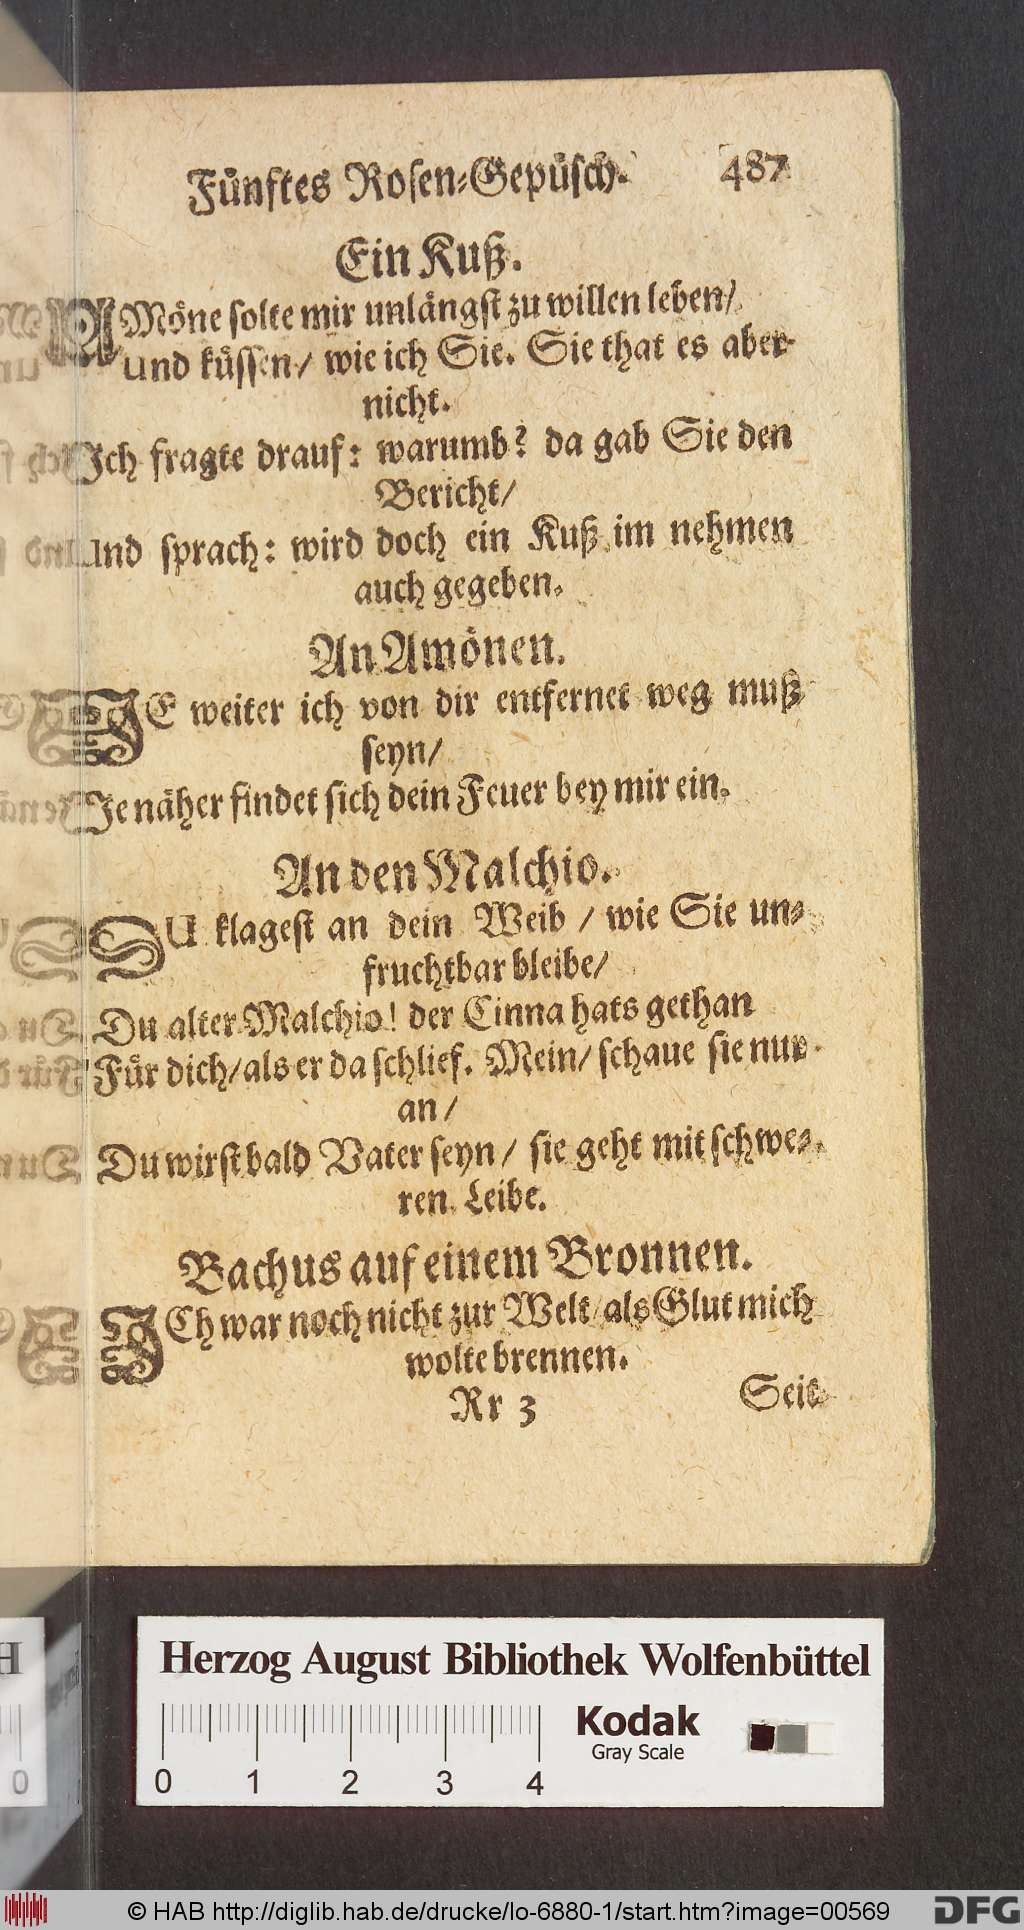 Fünftes Rosen-Gepüsch. 487
Ein Kuß.
AMöne solte mir unlängst zu willen leben/
und küssen/ wie ich Sie. Sie that es aber
nicht.
Ich fragte drauf: warumb? da gab Sie den
Bericht/
Und sprach: wird doch ein Kuß im nehmen
auch gegeben.
An Amönen.
JE weiter ich von dir entfernet weg muß
seyn/
Je näher findet sich dein Feuer bey mir ein.
An den Malchio.
DU klagest an dein Weib / wie Sie un-
fruchtbar bleibe/
Du alter Malchio! der Cinna hats gethan
Für dich/ als er da schlief. Mein/ schaue sie nur
an/
Du wirst bald Vater seyn/ sie geht mit schwe-
ren Leibe.
Bachus auf einem Bronnen.
ICh war noch nicht zur Welt/ als Glut mich
wolte brennen.
Rr 3 Seit
Herzog August Bibliothek Wolfenbüttel
Kodak
Gray Scale
0 1 2 3 4
© HAB http://diglib.hab.de/drucke/lo-6880-1/start.htm?image=00569
DFG